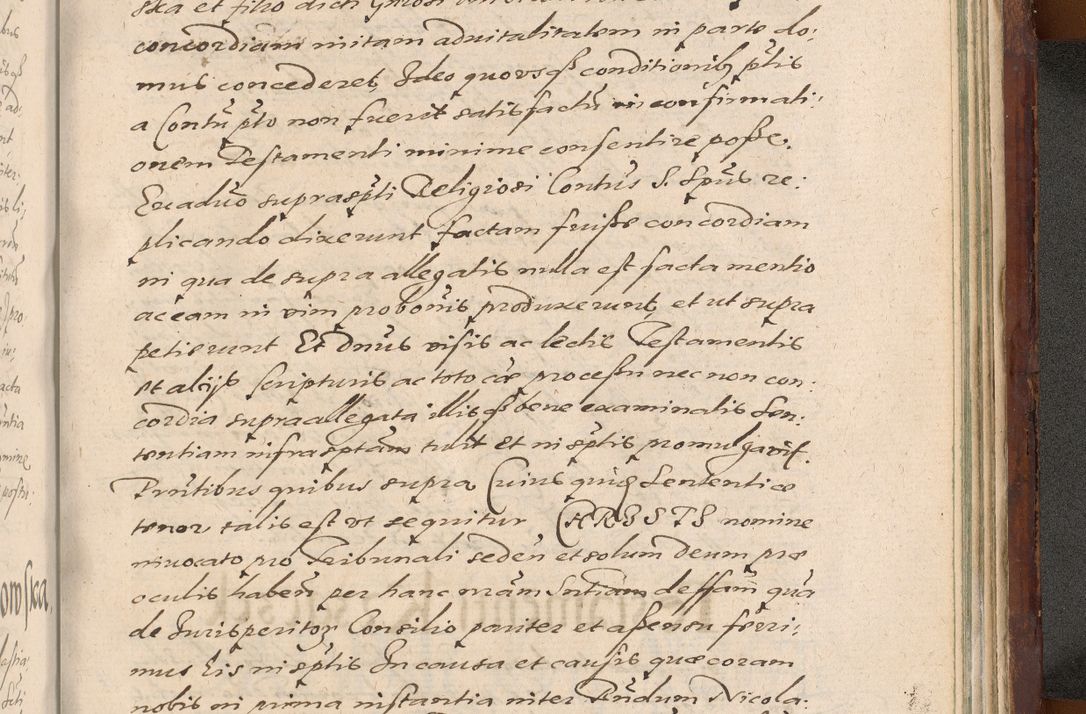 ska et filio dicti Gnosi
concordiam initam advitalitatem in parte do:
mus concederet, Ideo quousq(ue) conditionib(us) p̃tis
a Contũ p̃to non fuerit satisfactũ in confirmati:
onem Testamenti minime consentire posse.
Ex aduo suprasp̃ti Religiosi Contũs S. Spũs re:
plicando dixerunt factam fuisse concordiam
in qua de supra allegatis nulla est facta mentio
ac eam in vim probonis produxerunt, et ut supra
petierunt Et Dnũs visis ac lectis Testamentis
et alijs scripturis ac toto cãe processu nec non con:
cordia supra allegata illisq(ue) bene examinatis Sen:
tentiam infrasc̃ptam tulit et in sc̃ptis promulgavit.
Prñtibus quibus supra Cuius quid(em) Sententiæ
tenor talis est ut sequitur CHRISTI nomine
invocato pro Tribunali seden̄ et solum Deum præ
oculis haben̄ per hanc nrãm Sntiam deffam quã
de Jurisperitor(um) Consilio pariter et assensu ferri:
mus Eis in sc̃ptis In causa et causis quæ coram
nobis in prima instantia inter Rñdum Nicola: